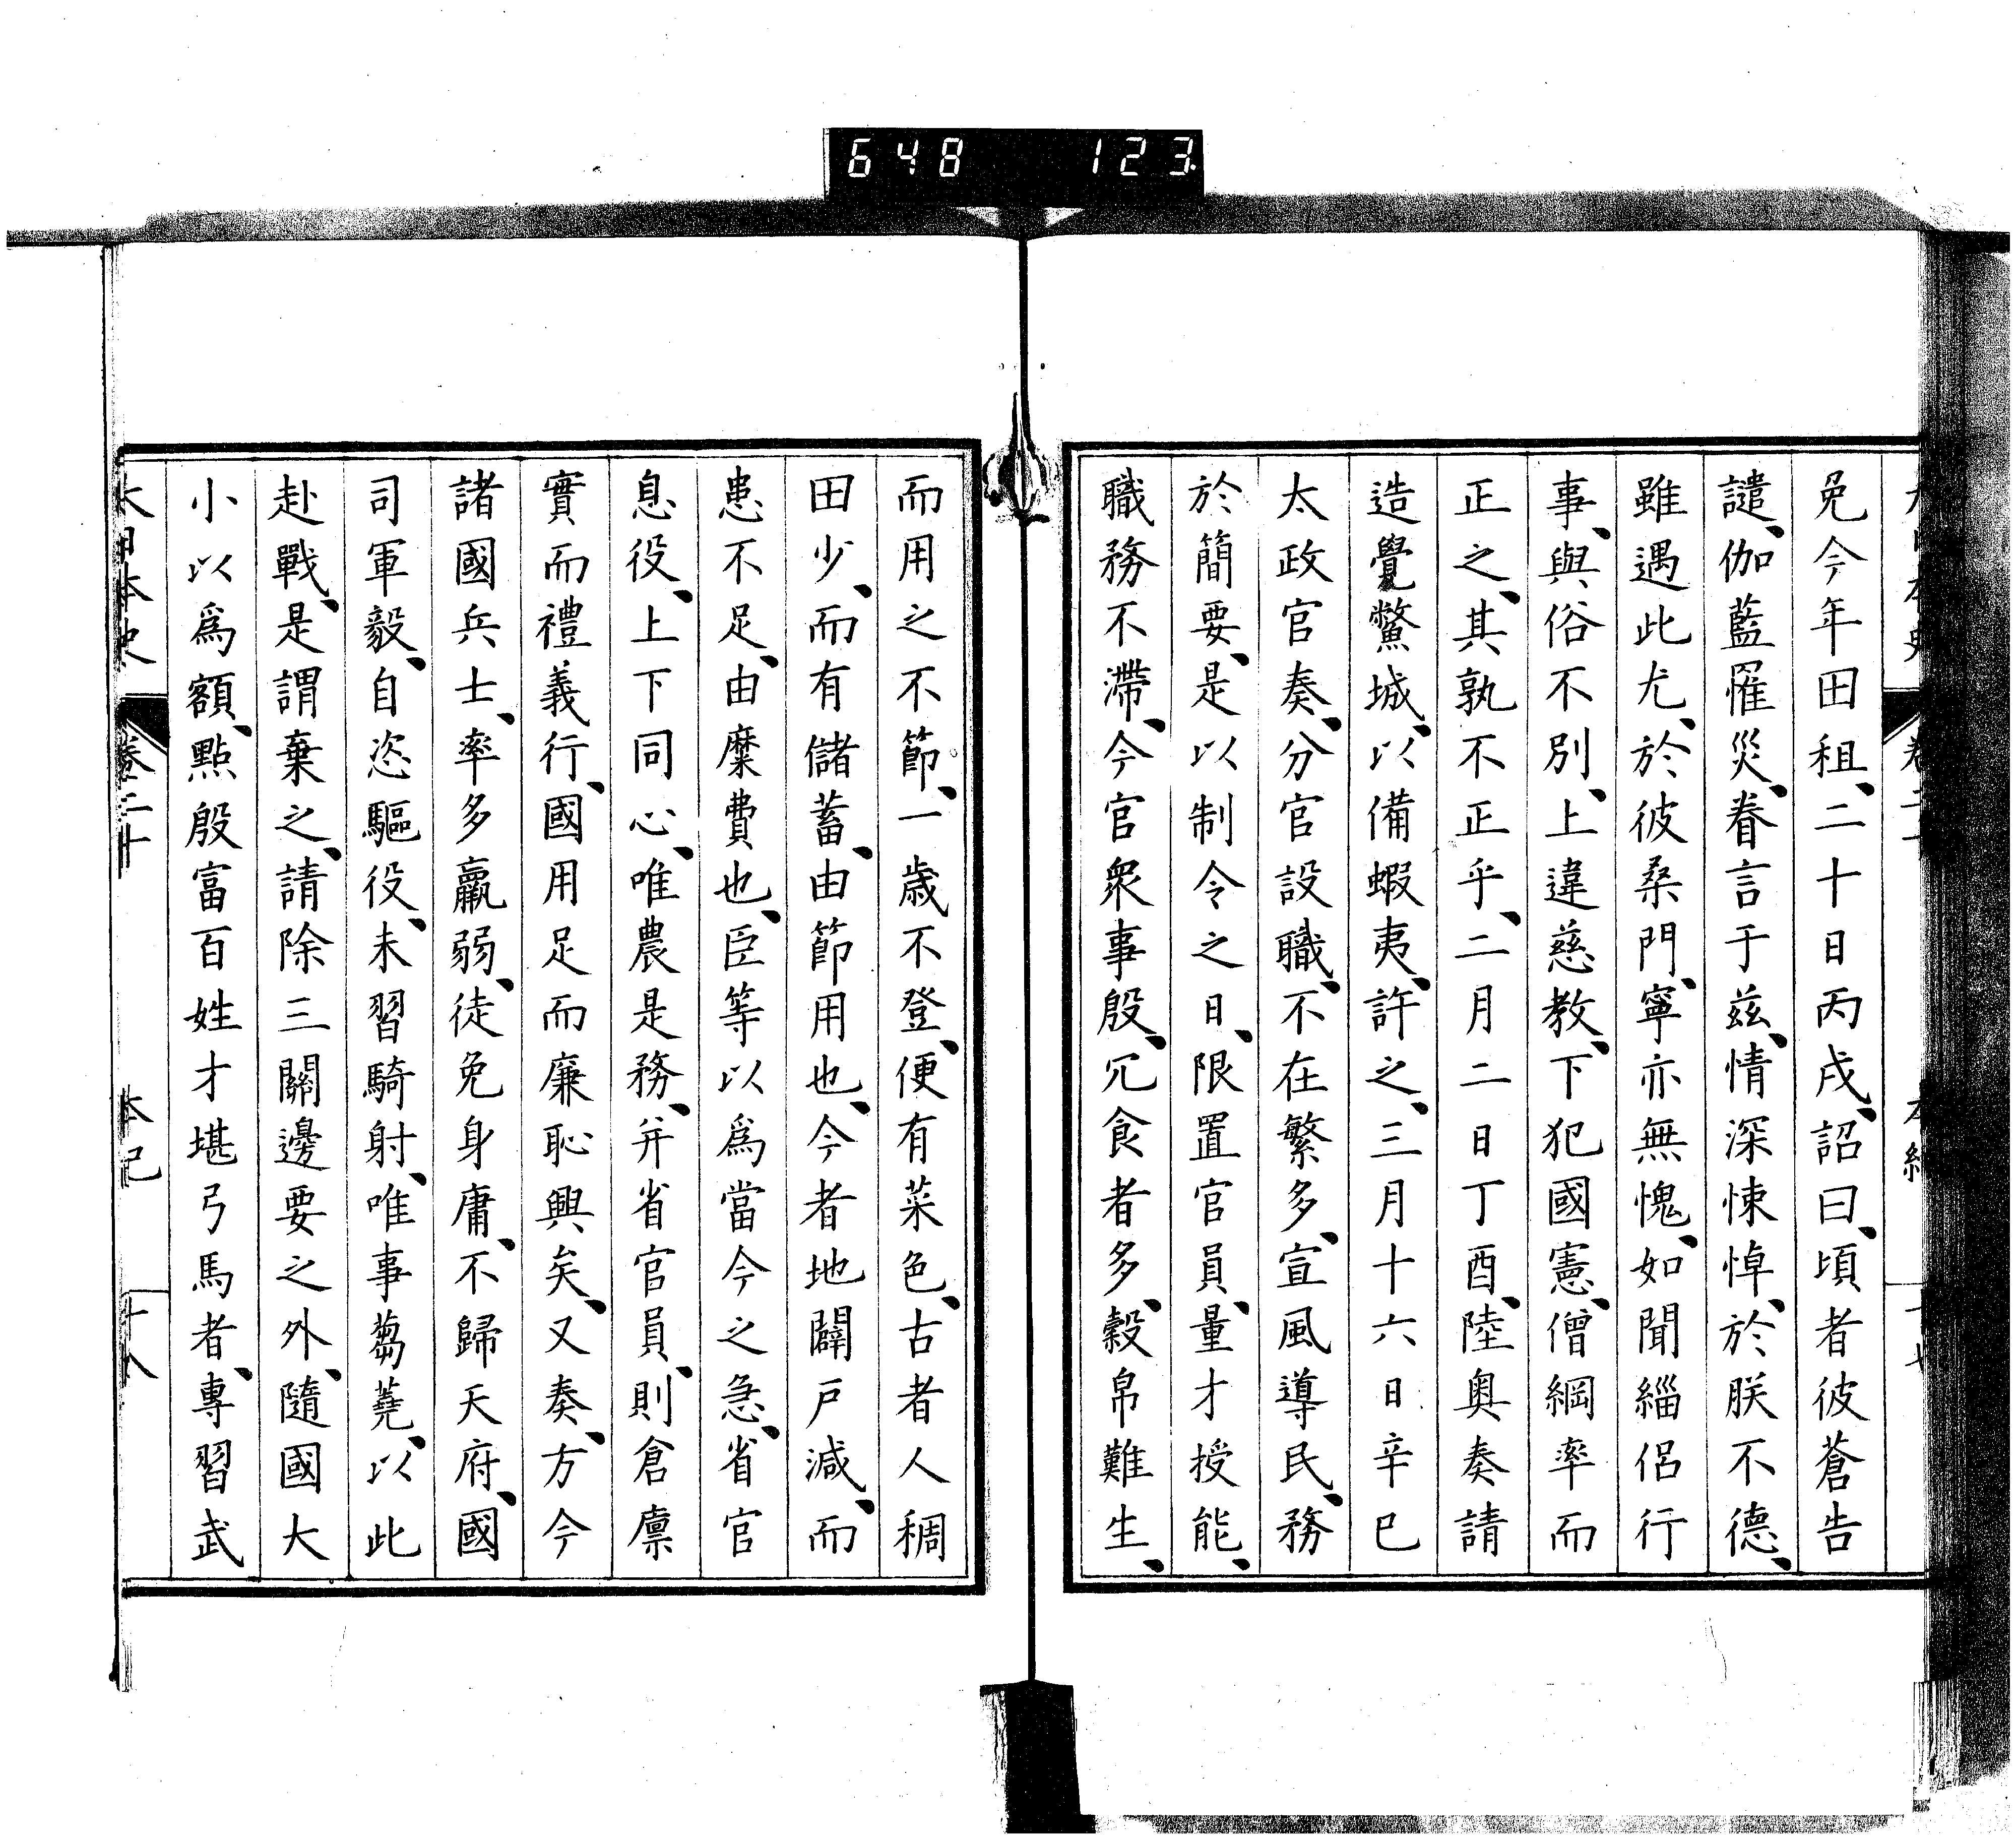 648 123
免今年田租、二十日丙戌、詔曰、頃者彼蒼告
譴、伽藍罹災、眷言于茲、情深悚悼、於朕不德、
雖遇此尤、於彼桑門、寧亦無愧、如聞緇侶行
事、與俗不別、上違慈教、下犯國憲、僧綱率而
正之、其孰不正乎、二月二日丁酉、陸奥奏請
造覺鱉城、以備蝦夷、許之、三月十六日辛巳
太政官奏、分官設職、不在繁多、宣風導民、務
於簡要、是以制令之日、限置官員、量才授能、
職務不滯、今官衆事殷、冗食者多、穀帛難生、
而用之不節、一歲不登、便有菜色、古者人稠
田少、而有儲蓄、由節用也、今者地闢戸減、而
患不足、由糜費也、臣等以爲當今之急、省官
息役、上下同心、唯農是務、并省官員、則倉廩
實而禮義行、國用足而廉恥興矣、又奏、方今
諸國兵士、率多羸弱、徒免身庸、不歸天府、國
司軍毅、自恣驅役、未習騎射、唯事蒭蕘、以此
赴戰、是謂棄之、請除三關邊要之外、隨國大
小以爲額、點殷富百姓才堪弓馬者、專習武
大日本史 卷二十 本紀 十八